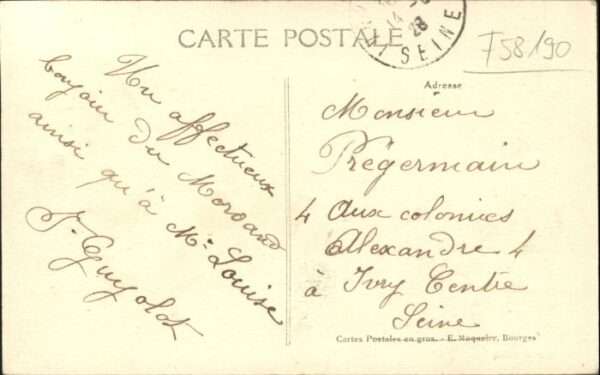 CARTE POSTALE
14 - 
28
SEINE
F58190
Un affectueux
bonjour du Morvand
ainsi qu'à Me Louise
J. Guyolot
Adresse
Monsieur
Prégermain
4 Aux colonies
Alexandre 4
à Ivry Centre
Seine
Cartes Postales en gros. - E. Maquaire, Bourges